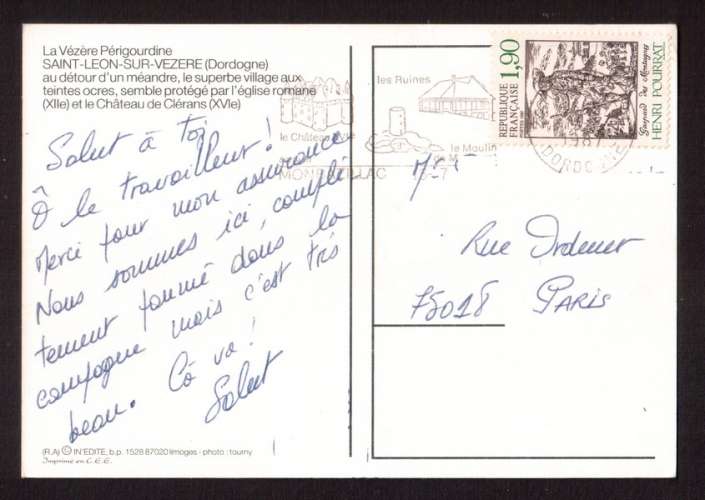 La Vézère Périgourdine
SAINT-LEON-SUR-VEZERE (Dordogne)
au détour d'un méandre, le superbe village aux
teintes ocres, semble protégé par l'église romane
(XIIe) et le Château de Clérans (XVIe)
Salut à toi
Ô le travailleur !
Merci pour mon assurance
Nous sommes ici, complè
tement paumé dans la
campagne mais c'est très
beau. Cà va !
Salut
(R.A) © IN'EDITE, b.p. 1528 87020 limoges - photo : tourny
Imprimé en C.E.E.
les Ruines
le Château
le Moulin
MONBAZILLAC
DORDOGNE
REPUBLIQUE FRANÇAISE 1,90
Gaspard des Montagnes
HENRI POURRAT
Rue Ordener
75018 PARIS